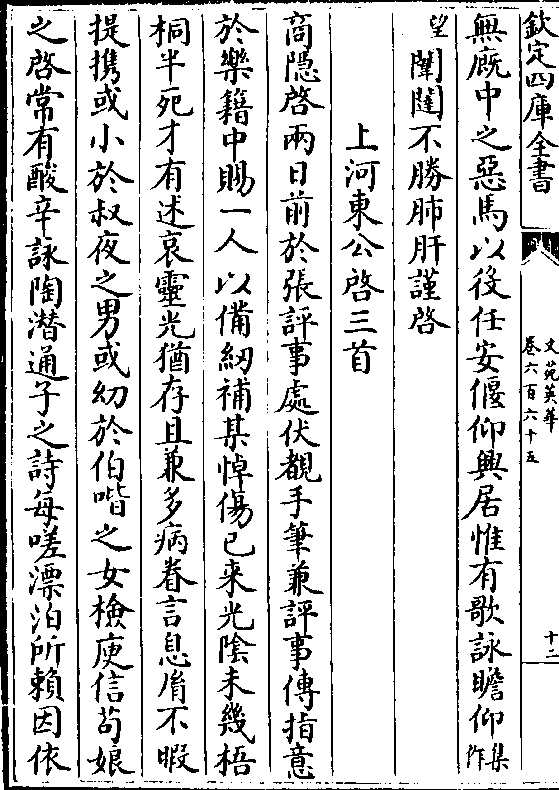 欽定四庫全書
文苑英華
卷六百六十五
十二
無廐中之惡馬以役任安偃仰興居惟有歌詠瞻仰集作
望闈闥不勝肺肝謹啓
上河東公啓三首
商隱啓兩日前於張評事處伏覩手筆兼評事傳指意
於樂籍中賜一人以備紉補某悼傷已來光陰未幾梧
桐半死才有述哀靈光猶存且兼多病眷言息𦙍不暇
提携或小於叔夜之男或幼於伯喈之女檢庾信荀娘
之啓常有酸辛詠陶潛通子之詩每嗟漂泊所賴因依